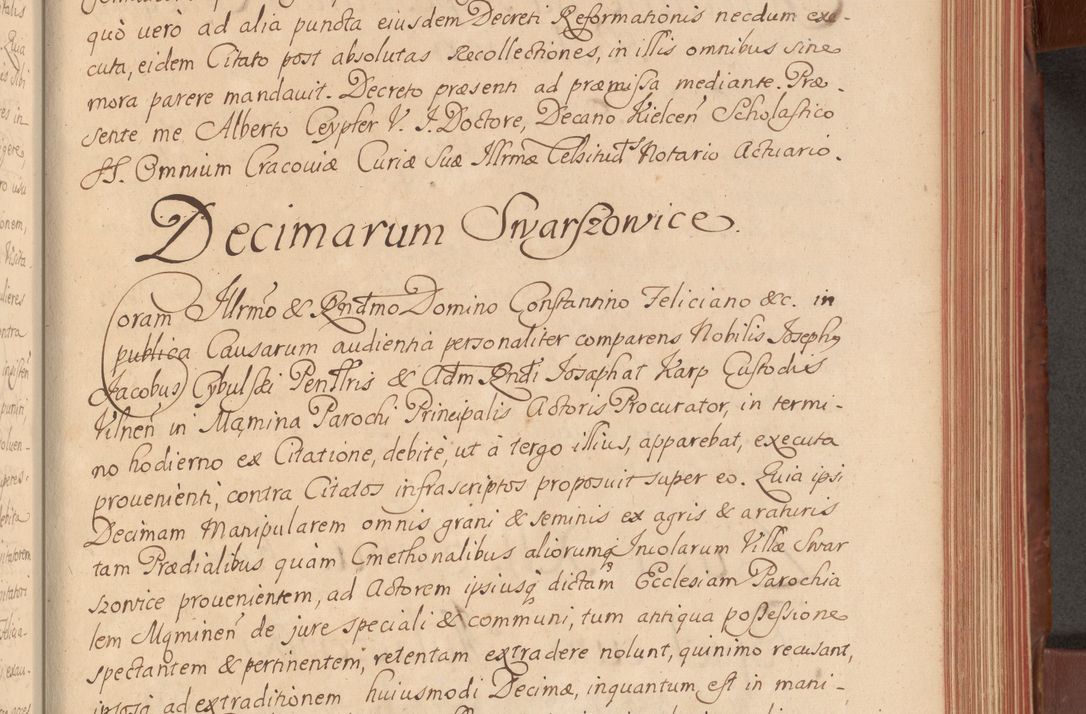 quò vero ad alia puncta eiusdem Decreti Reformationis necdum exe-
cuta, eidem Citato post absolutas Recollectiones, in illis omnibus sine
mora parere mandavit. Decreto præsenti ad præmissa mediante. Præ-
sente me Alberto Ceypler V. J. Doctore, Decano Kielcen Scholastico
SS. Omnium Cracoviæ Curiæ Suæ Illrmæ Celsituds Notario Actuario.
Decimarum Swarszowice.
Coram Illrmo & Rndmo Domino Constantino Feliciano &c. in
publica Causarum audientia personaliter comparens Nobilis Joseph9
Jacobus Cybulski Penstris & Adm Rndi Josaphat Karp Custodis
Vilnen in Mąmina Parochi Principalis Actoris Procurator, in termi-
no hodierno ex Citatione, debitè, ut à tergo illius, apparebat, executa
provenienti, contra Citatos infrascriptos proposuit super eo. Quia ipsi
Decimam Manipularem omnis grani & seminis ex agris & araturis
tam Prædialibus quàm Cmethonalibus aliorumq Incolarum Villæ Swar
szowice provenientem, ad Actorem ipsiusq dictam Ecclesiam Parochia
lem Mąminen de jure speciali & communi, tum antiqua possessione
spectantem & pertinentem, retentam extradere nolunt, quinimo recusant,
ipsosq ad extraditionem huiusmodi Decimæ, inquantum est in mani-